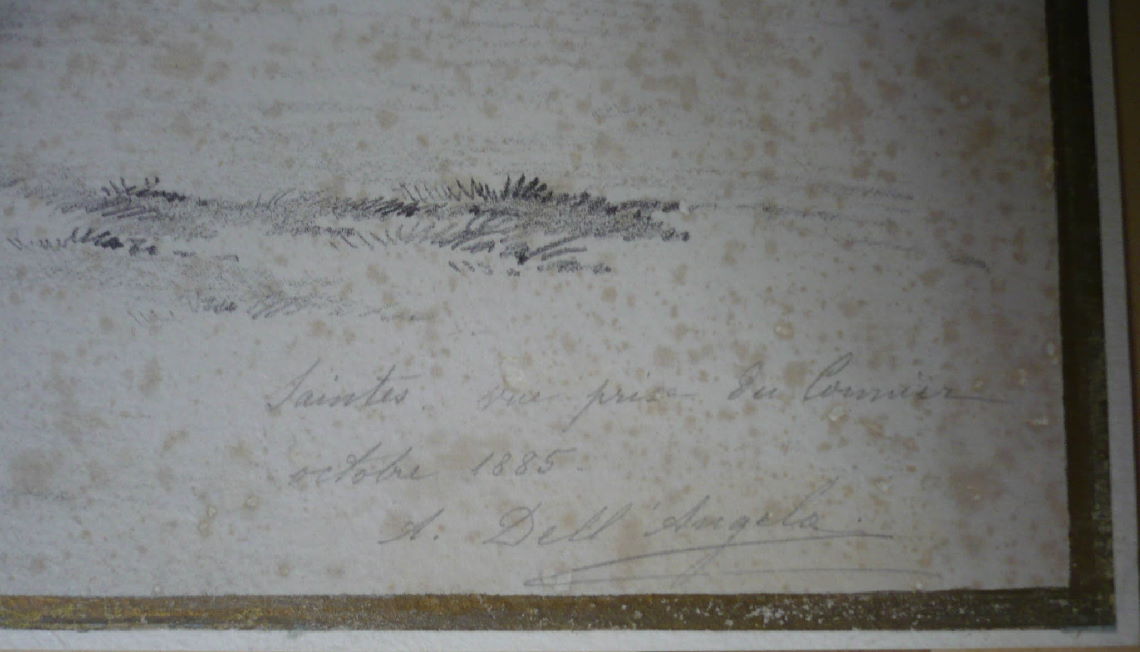 Saintes. vue prise du Cormier
octobre 1885.
A. Dell'Angela.